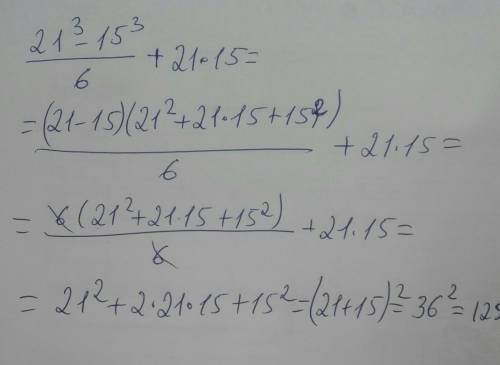 (21³ - 15³)/6 + 21·15 =
= (21-15)(21² + 21·15 + 15²)/6 + 21·15 =
= 6(21² + 21·15 + 15²)/6 + 21·15 =
= 21² + 2·21·15 + 15² = (21+15)² = 36² = 129